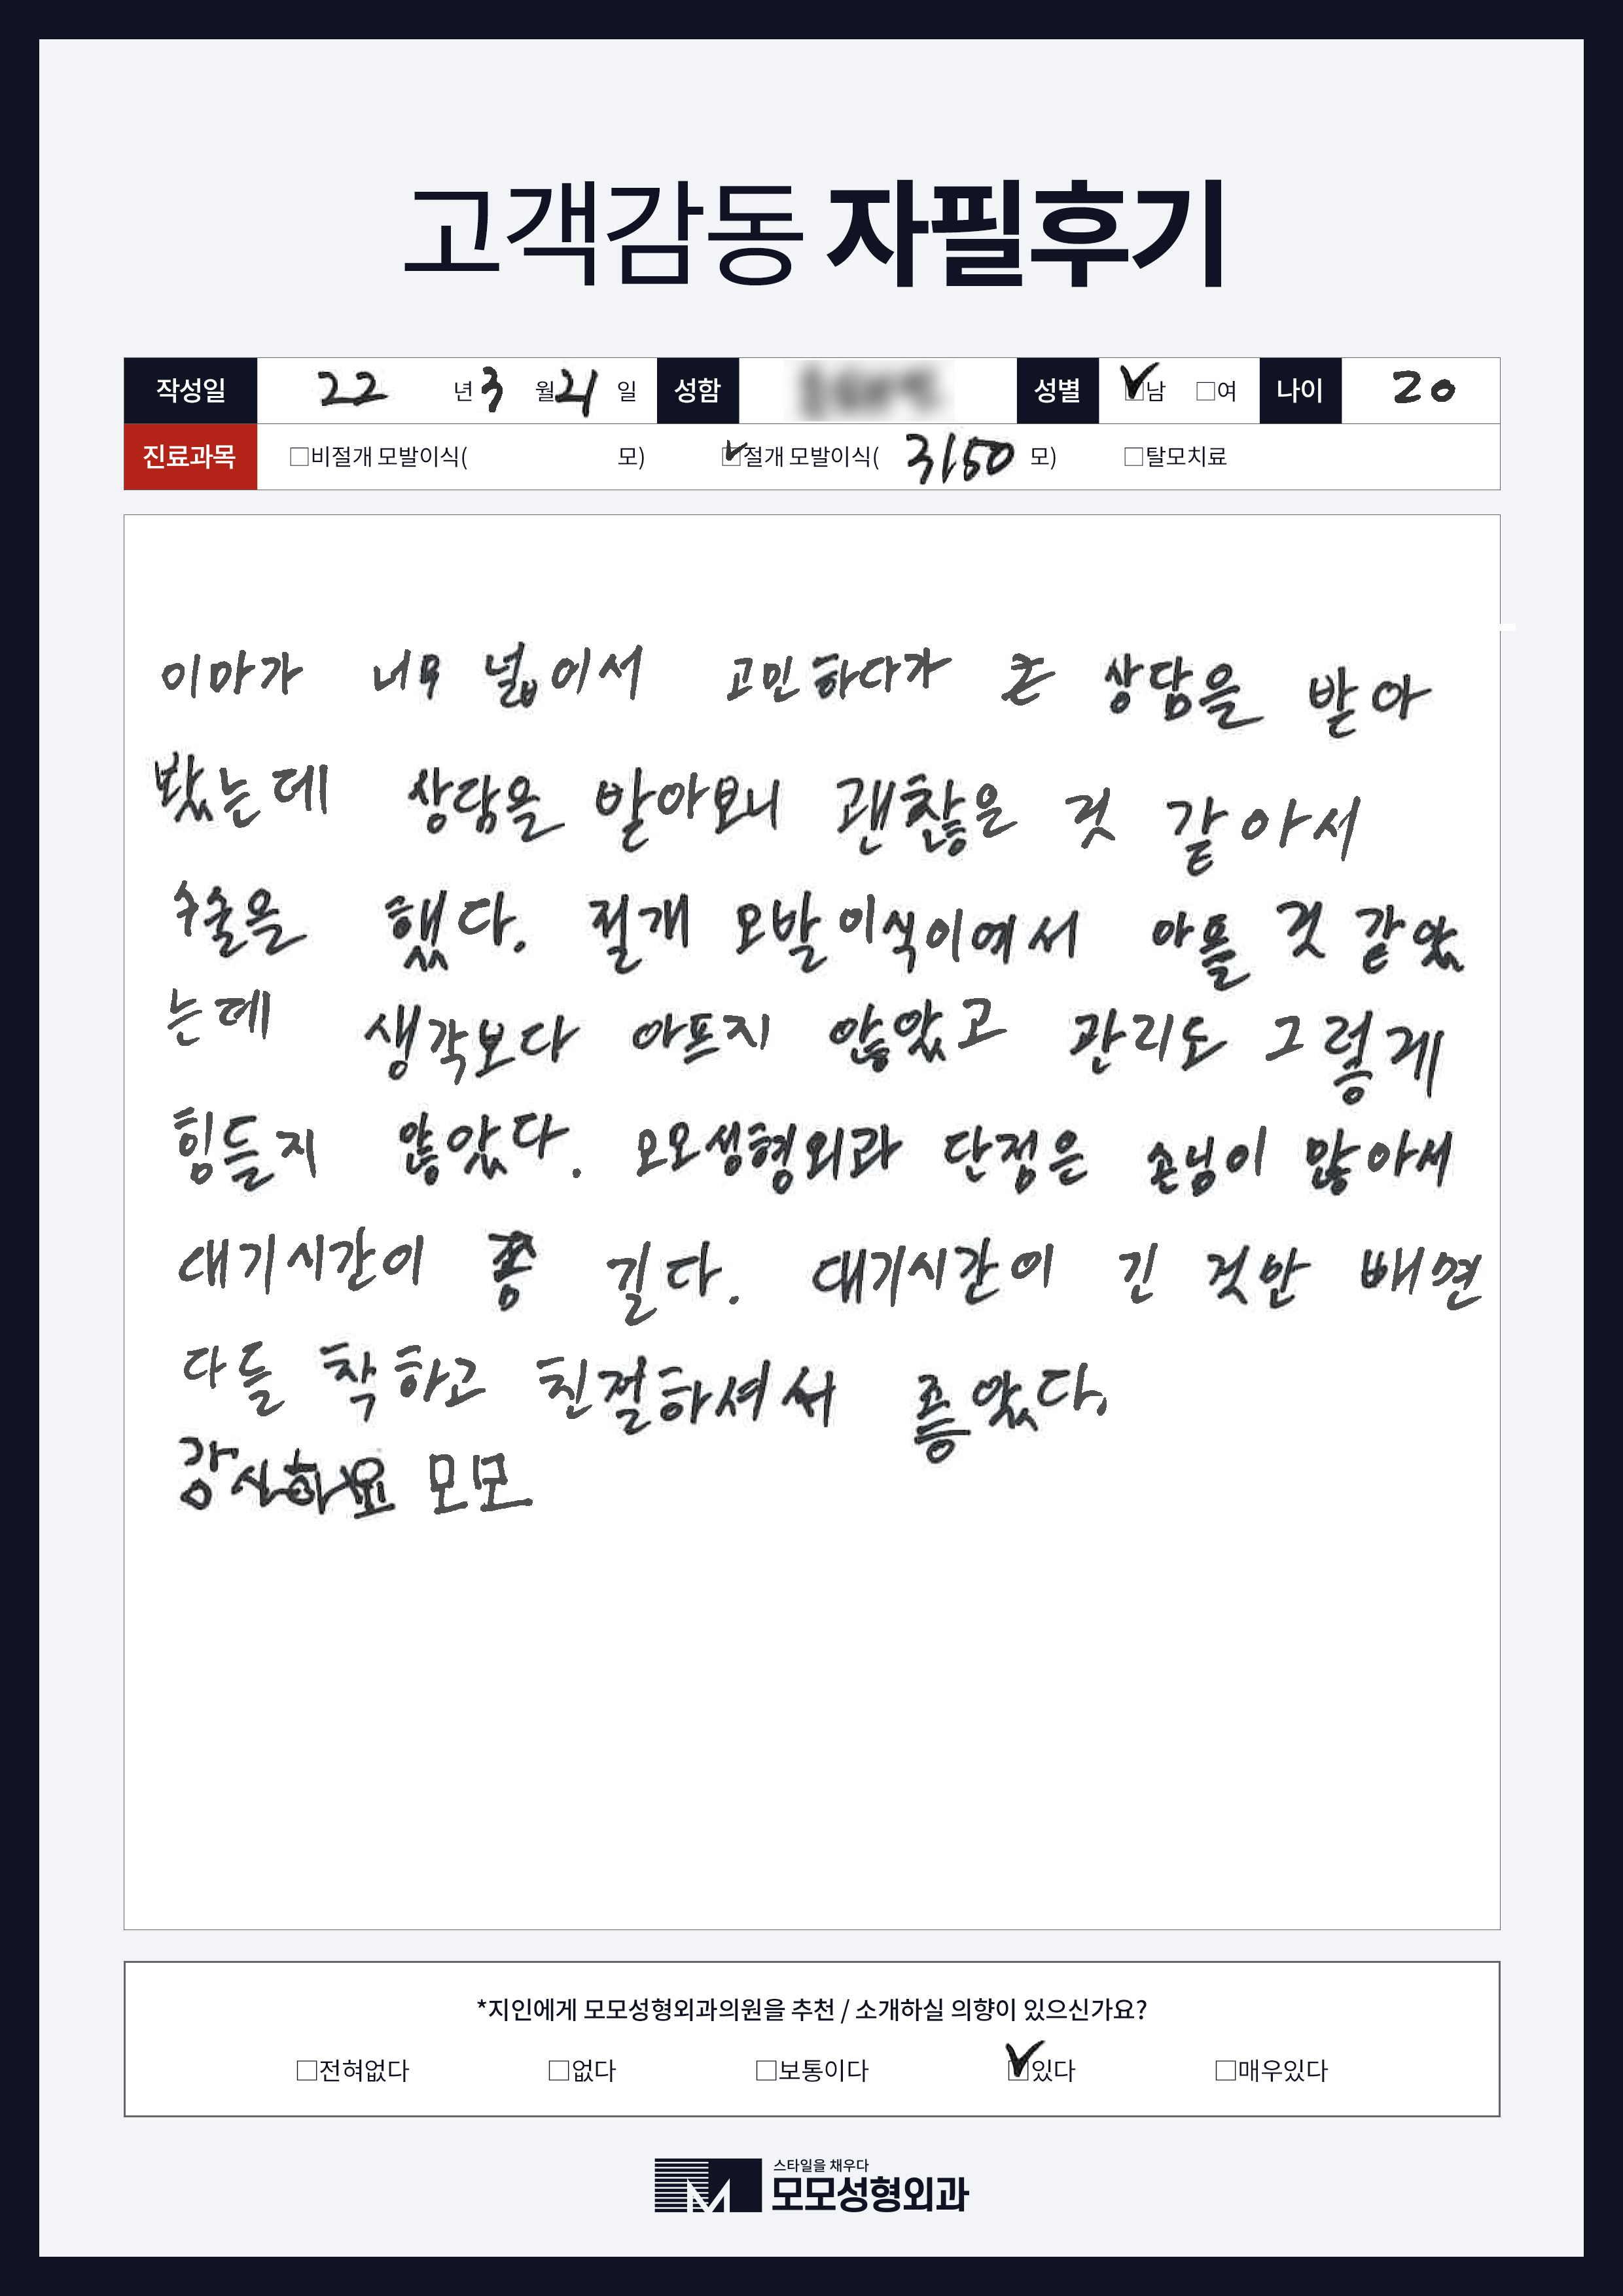 고객감동 자필후기
작성일 22 년 3 월 21 일 성함 성별 ☑남 □여 나이 20
진료과목 □비절개 모발이식( 모) ☑절개 모발이식( 3150 모) □탈모치료
이마가 너무 넓어서 고민하다가 큰 상담을 받아
봤는데 상담을 받아보니 괜찮은 것 같아서
수술을 했다. 절개 모발이식이여서 아플 것 같았
는데 생각보다 아프지 않았고 관리도 그렇게
힘들지 않았다. 모모성형외과 단점은 손님이 많아서
대기시간이 좀 길다. 대기시간이 긴 것만 빼면
다들 착하고 친절하셔서 좋았다.
감사해요 모모
*지인에게 모모성형외과의원을 추천 / 소개하실 의향이 있으신가요?
□전혀없다 □없다 □보통이다 ☑있다 □매우있다
스타일을 채우다
모모성형외과